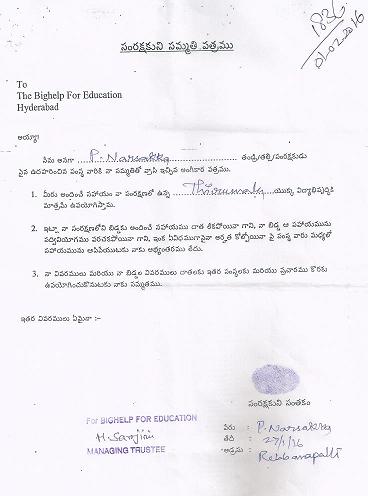 1836
01-02-2016
సంరక్షకుని సమ్మతి పత్రము
To
The Bighelp For Education
Hyderabad
అయ్యా!
నేను అనగా P. Narsakka తండ్రి/తల్లి/సంరక్షకుడు
పైన ఉదహరించిన సంస్థ వారికి నా సమ్మతితో వ్రాసి ఇచ్చిన అంగీకార పత్రము.
1. మీరు అందించే సహాయం నా సంరక్షణలో ఉన్న Thirumala యొక్క విద్యాభివృద్ధికి
మాత్రమే ఉపయోగిస్తాము.
2. ఇట్లా నా సంరక్షణలోని బిడ్డకు అందించే సహాయము దాత లేకపోయినా గాని, నా బిడ్డ ఆ సహాయమును
సద్వినియోగము పరచకపోయినా గాని, ఇంక ఏవిధముగానైనా అర్హత కోల్పోయినా పై సంస్థ వారు మధ్యలో
సహాయమును ఆపివేయుటకు నాకు అభ్యంతరము లేదు.
3. నా వివరములు మరియు నా బిడ్డల వివరములు దాతలకు ఇతర సంస్థలకు మరియు ప్రచారము కొరకు
ఉపయోగించుకొనుటకు నాకు సమ్మతము.
ఇతర వివరములు ఏమైనా :-
సంరక్షకుని సంతకం
For BIGHELP FOR EDUCATION
MANAGING TRUSTEE
పేరు : P. Narsakka
తేది : 27/1/16
అడ్రసు : Rebbanapalli